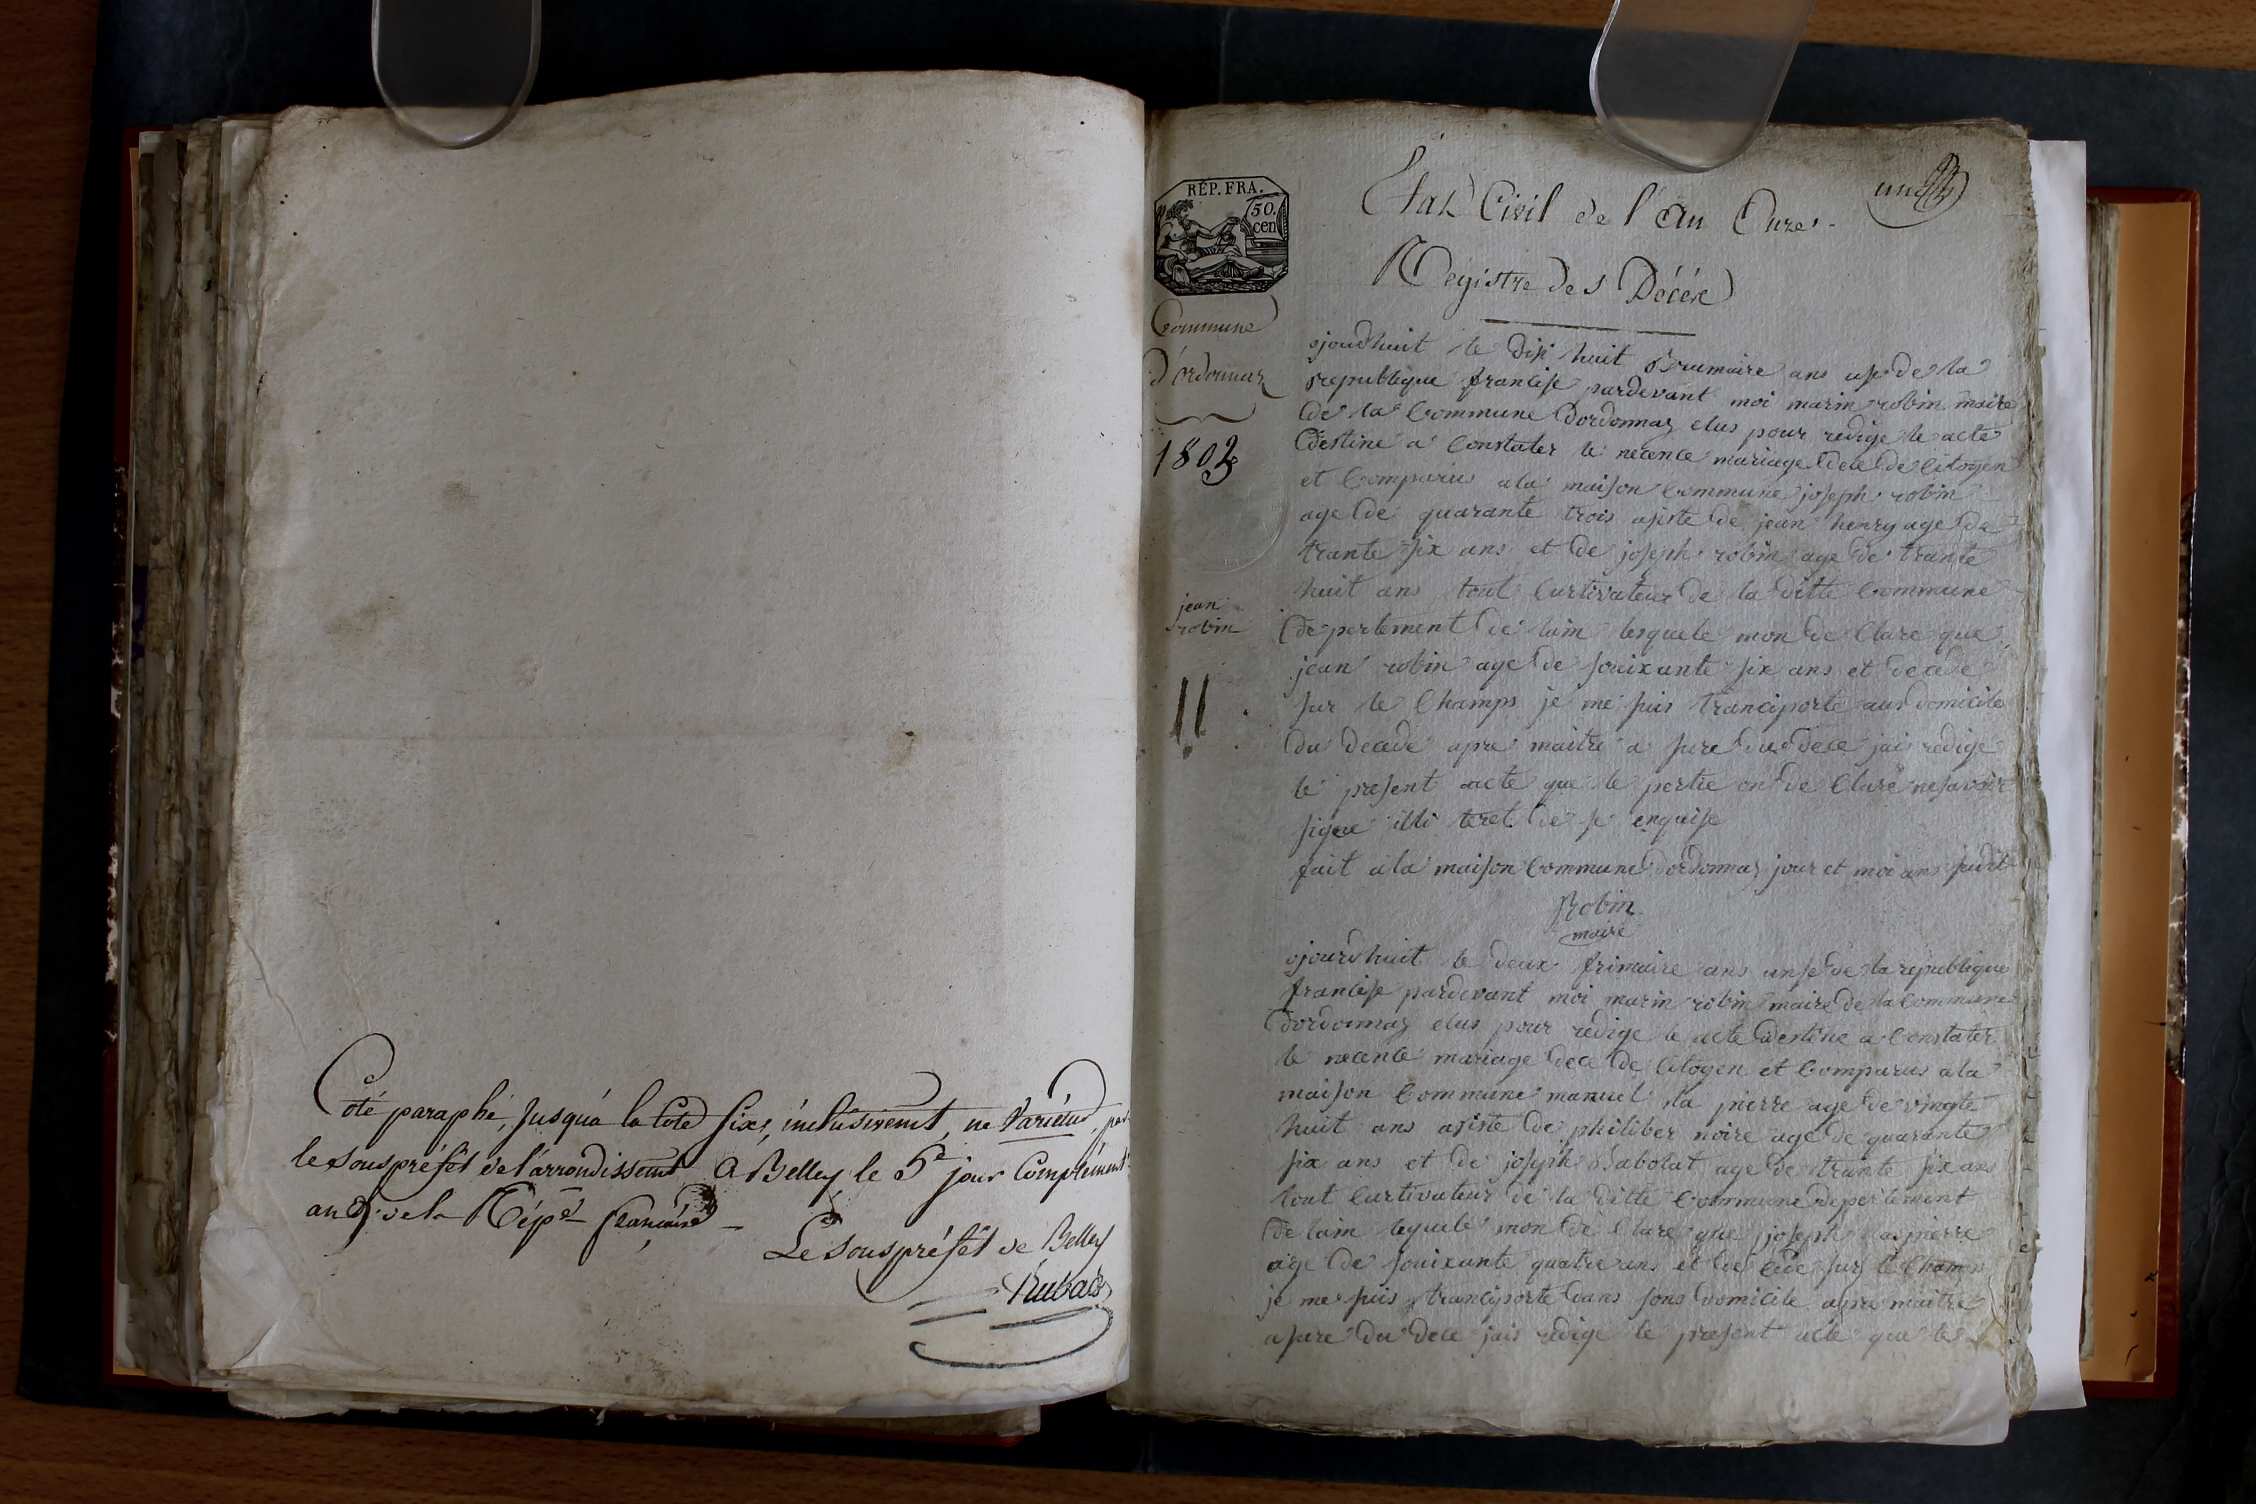 Coté paraphé, jusqu'a la cote six, inclusivement, ne varietur, par
le souspréfét de l'arrondissemt a Belley le 5e jour Complément
an de la Répe française
Le souspréfét de Belley
Rubat
RÉP. FRA.
50.
cen
Commune
d'ordonnaz
1802
jean
robin
Etat Civil de l'an Onze
un
Registre des Décès
ojourdhuit le dix huit Brumaire ans de la
republique francise pardevant moi marin robin maire
de la Commune dordonnaz elus pour redige le acte
destine a Constater le necence mariage dece de Citoyen
et Comparus a la maison Commune joseph robin
age de quarante trois asiste de jean henry age de
trante six ans et de joseph robin age de trante
huit ans tout Curtivateur de la ditte Commune
depertement de lain lesquele mon de Clare que
jean robin age de souixante six ans et decede
sur le Champs je me suis tranciporte aus domicile
du decede apre maitre a sure du dece jai redige
le present acte que le pertie on de Clare ne savoir
signe de se enquise
fait a la maison Commune dordonnaz jour et moi ans sudit
Robin
maire
ojourdhuit le deux frimaire ans onse de la republique
francise pardevant moi marin robin maire de la Commune
dordonnaz elus pour redige le acte destine a Constater
le necence mariage dece de Citoyen et Comparus a la
maison Commune manuel la pierre age de vingte
huit ans asiste de philiber noire age de quarante
six ans et de joseph Babolat age de trante six ans
tout Curtivateur de la ditte Commune depertement
de lain lequele mon de Clare que joseph lapierre
age de souixante quatre ans et de Cede sur le Champs
je me suis tranciporte dans sons domicile apre maitre
asure du dece jais redige le present acte que les